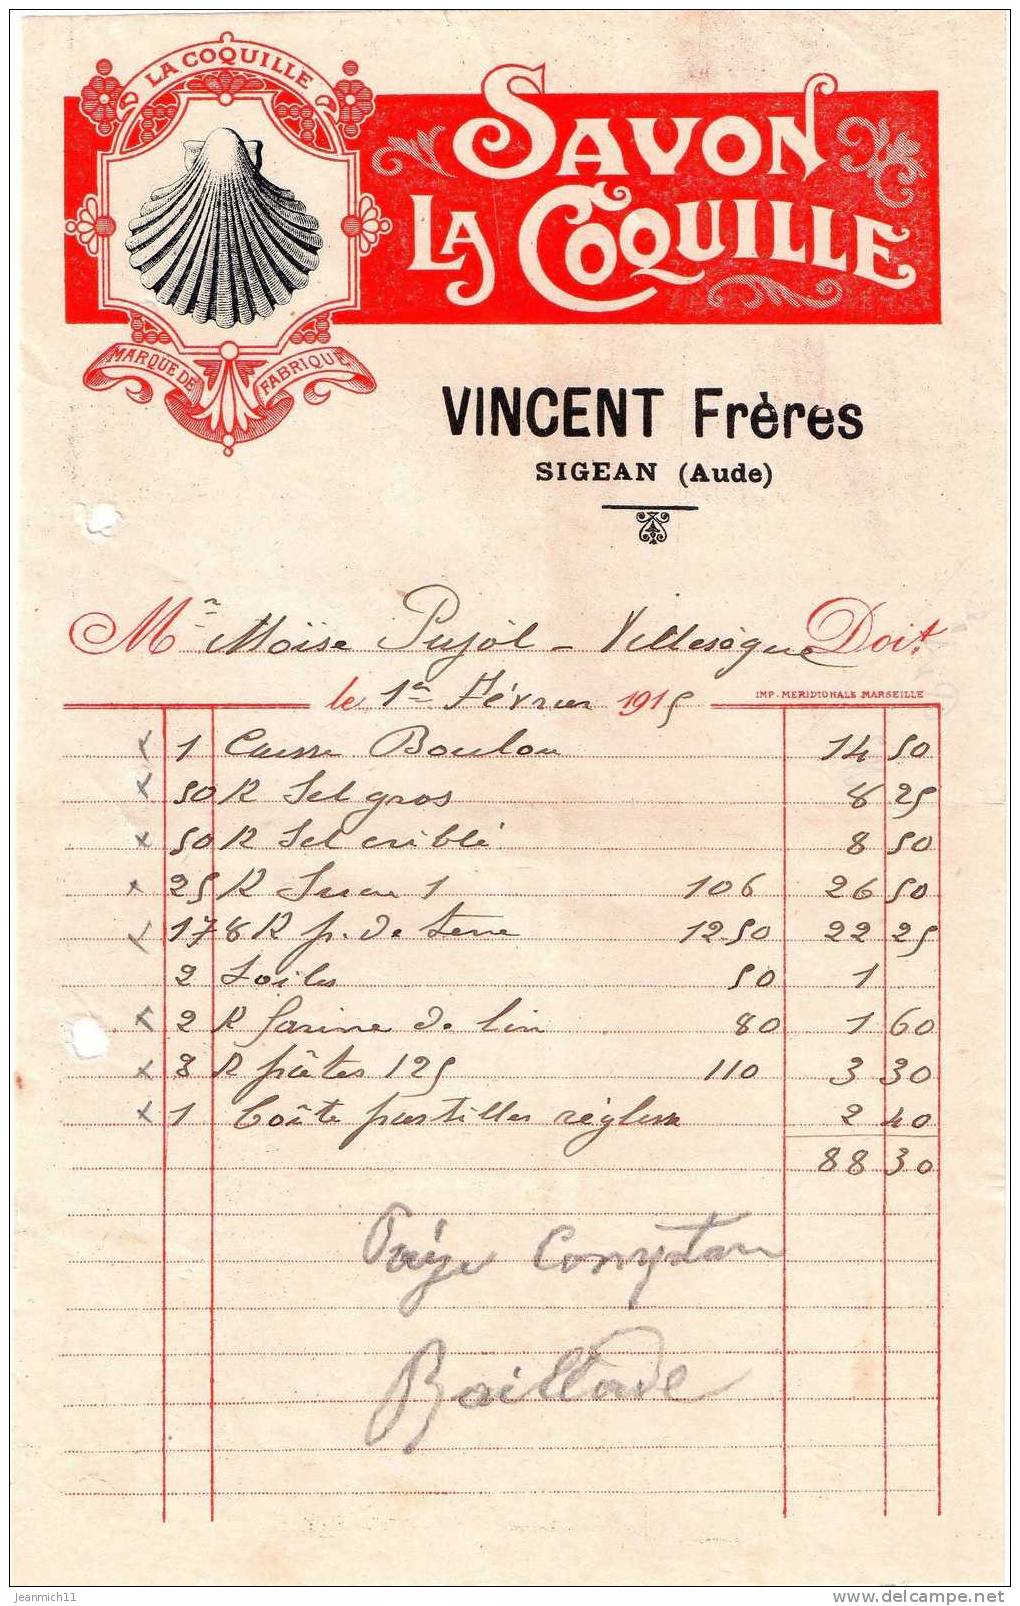 LA COQUILLE
SAVON
LA COQUILLE
MARQUE DE FABRIQUE
VINCENT Frères
SIGEAN (Aude)
Mr Moïse Pujol - Villesèque Doit
le 1er Février 1915
IMP. MERIDIONALE MARSEILLE
x 1 Caisse Boulou 14 50
x 50 K Sel gros 8 25
x 50 K Sel criblé 8 50
x 25 K Sucre 1 106 26 50
x 178 K p. de terre 1250 22 25
2 Toiles 50 1
x 2 K farine de lin 80 1 60
x 3 K pâtes 125 110 3 30
x 1 boîte pastilles 2 40
88 30
Payé Comptan
jeanmich11
www.delcampe.net